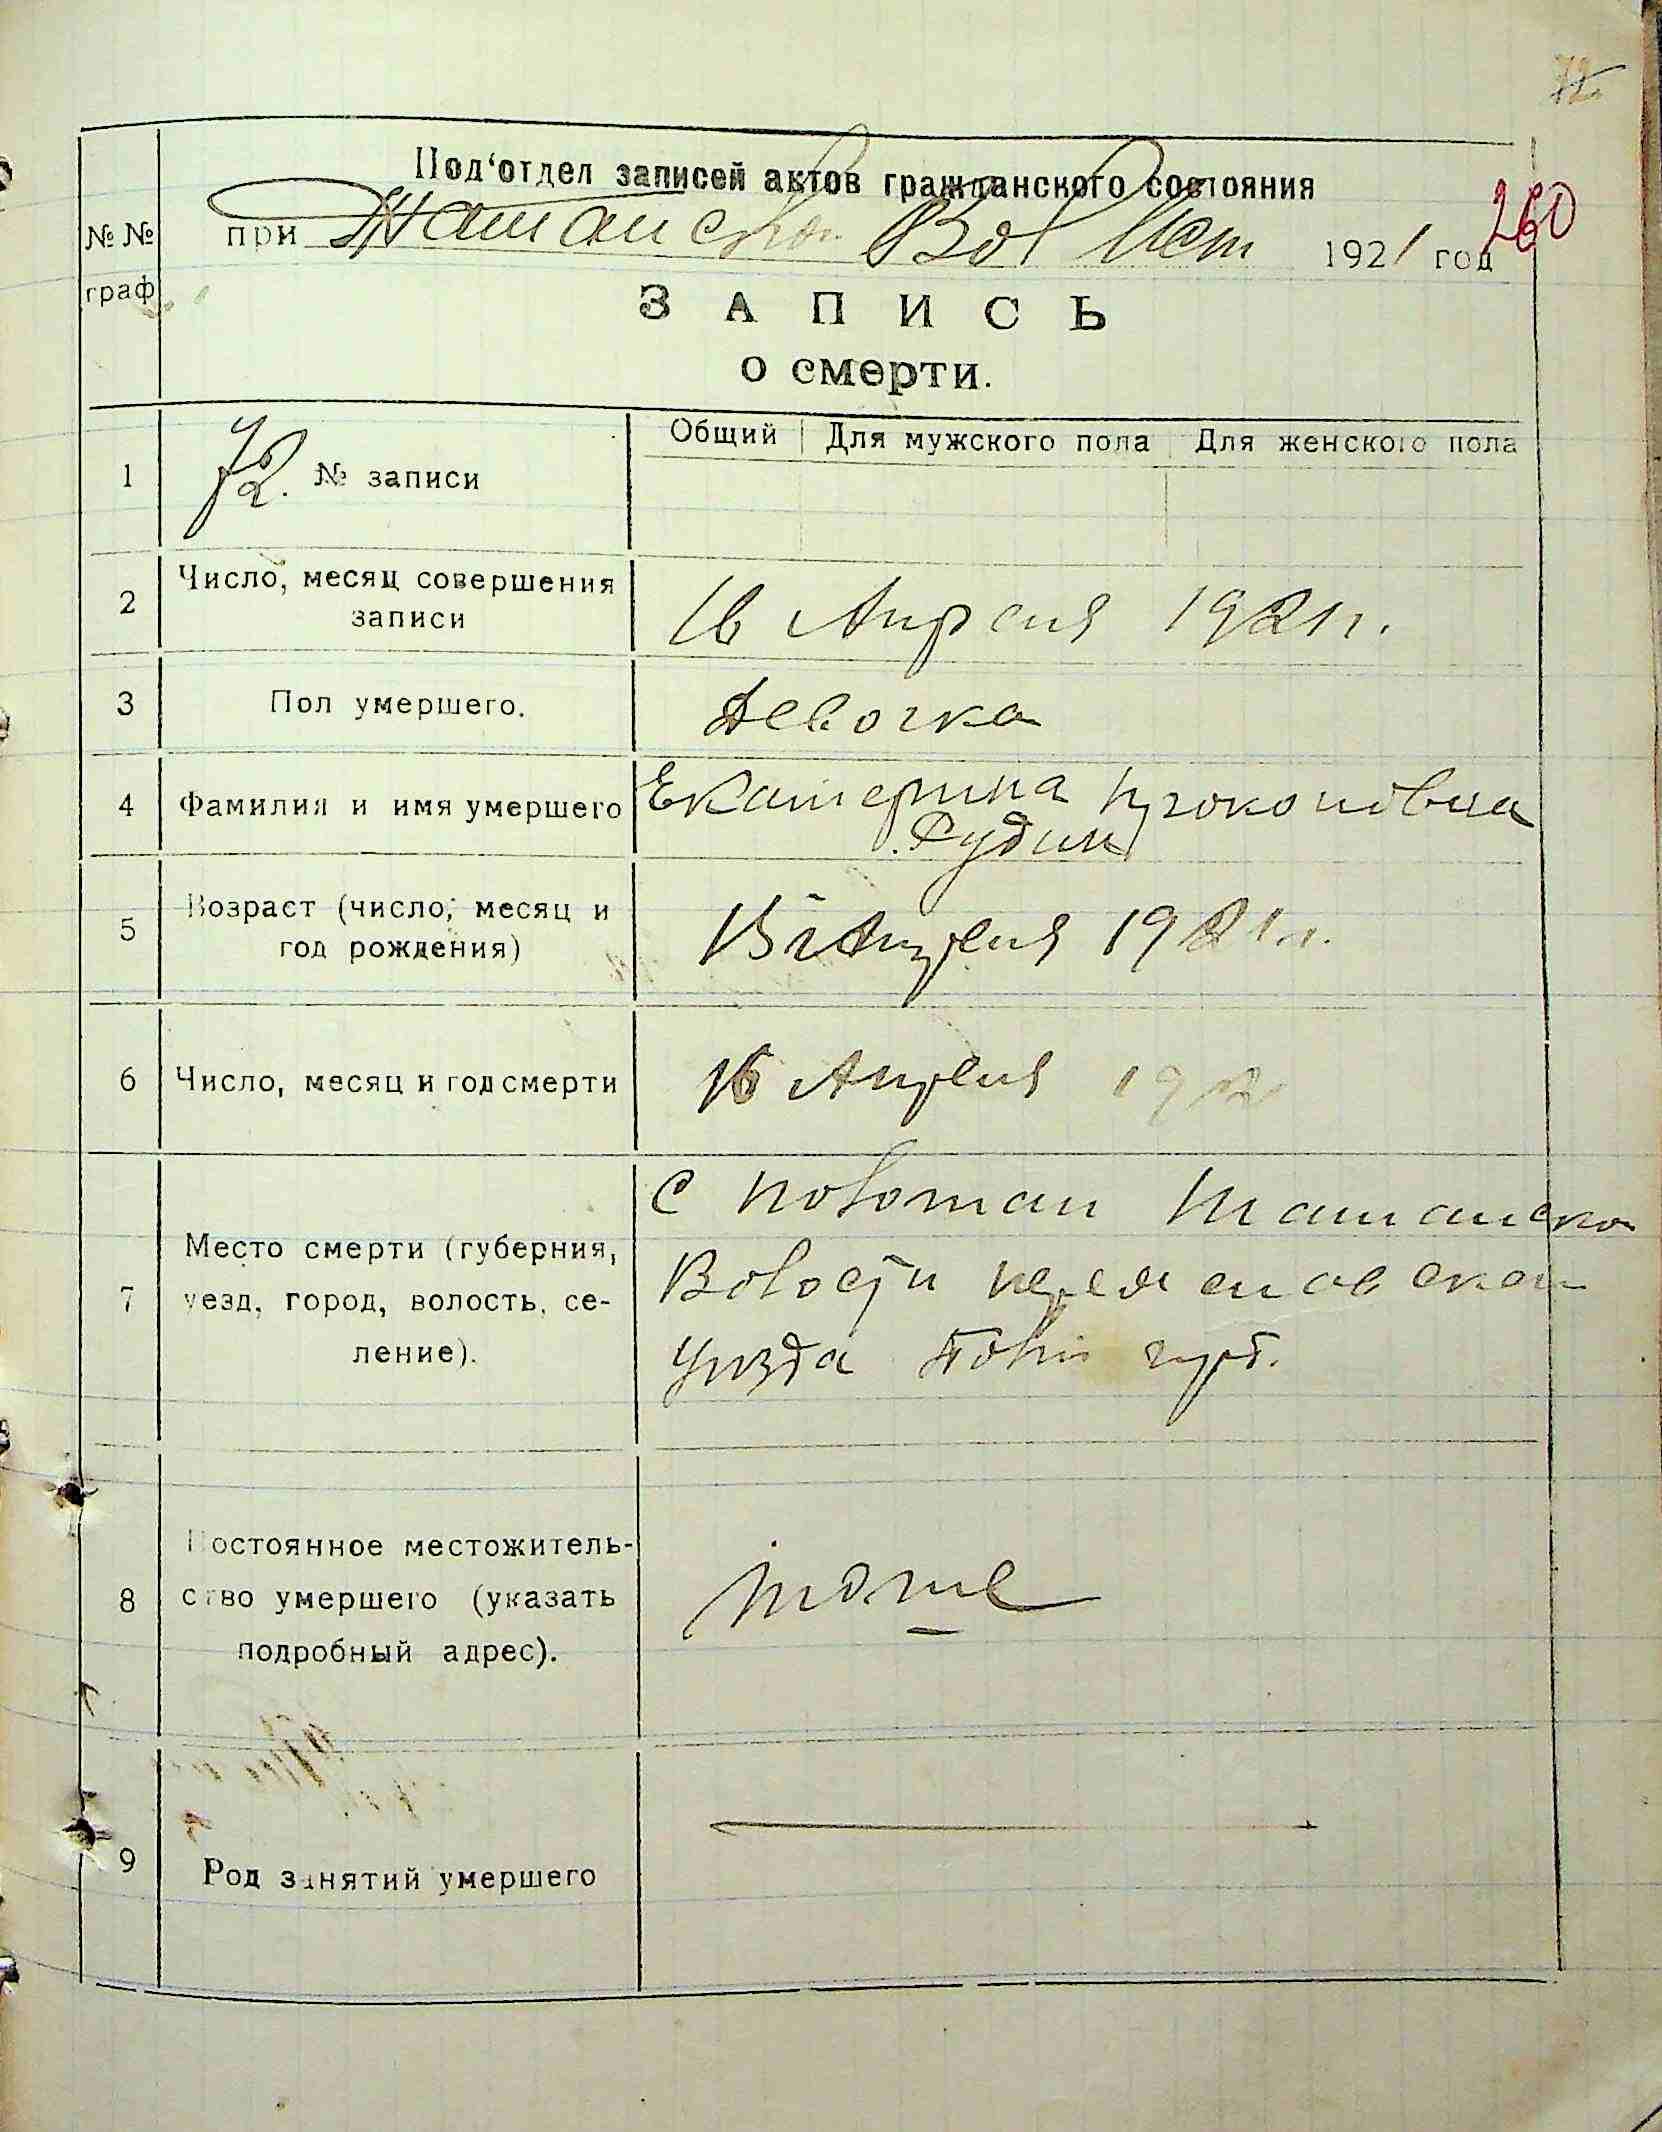 72
Под‘отдел записей актов гражданского состояния
при Ташанском Вол Исп 1921 год
260
№№ граф
ЗАПИСЬ
о смерти.
Общий Для мужского пола Для женского пола
1 72. № записи
2 Число, месяц совершения
записи
16 Апреля 1921 г.
3 Пол умершего. Девочка
4 Фамилия и имя умершего Екатерина Прокоповна
Рудик
5 Возраст (число, месяц и
год рождения)
15 го Апреля 1921 г.
6 Число, месяц и год смерти 16 Апреля 192
7 Место смерти (губерния,
уезд, город, волость, се-
ление).
С Ташанско
Волости
Уизда Полт губ.
8 Постоянное местожитель-
ство умершего (указать
подробный адрес).
тоже
9 Род занятий умершего